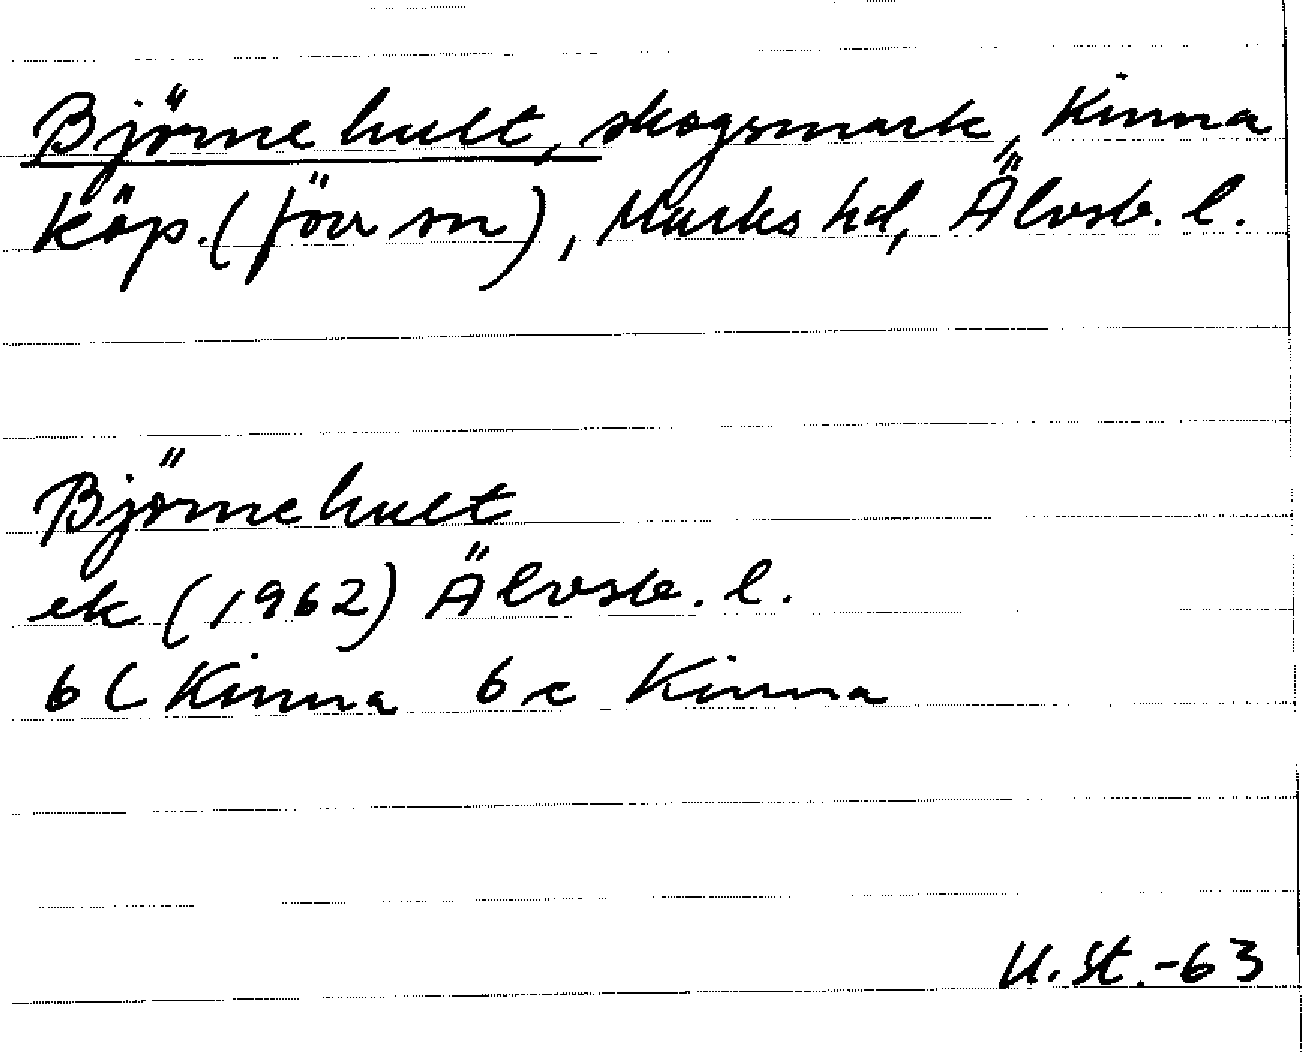 Björnehult, skogsmark, Kinna
köp. (förr sn), Marks hd, Älvsb. l.
Björnehult
ek (1962) Älvsb. l.
6 C Kinna 6 c Kinna
U. St. -63